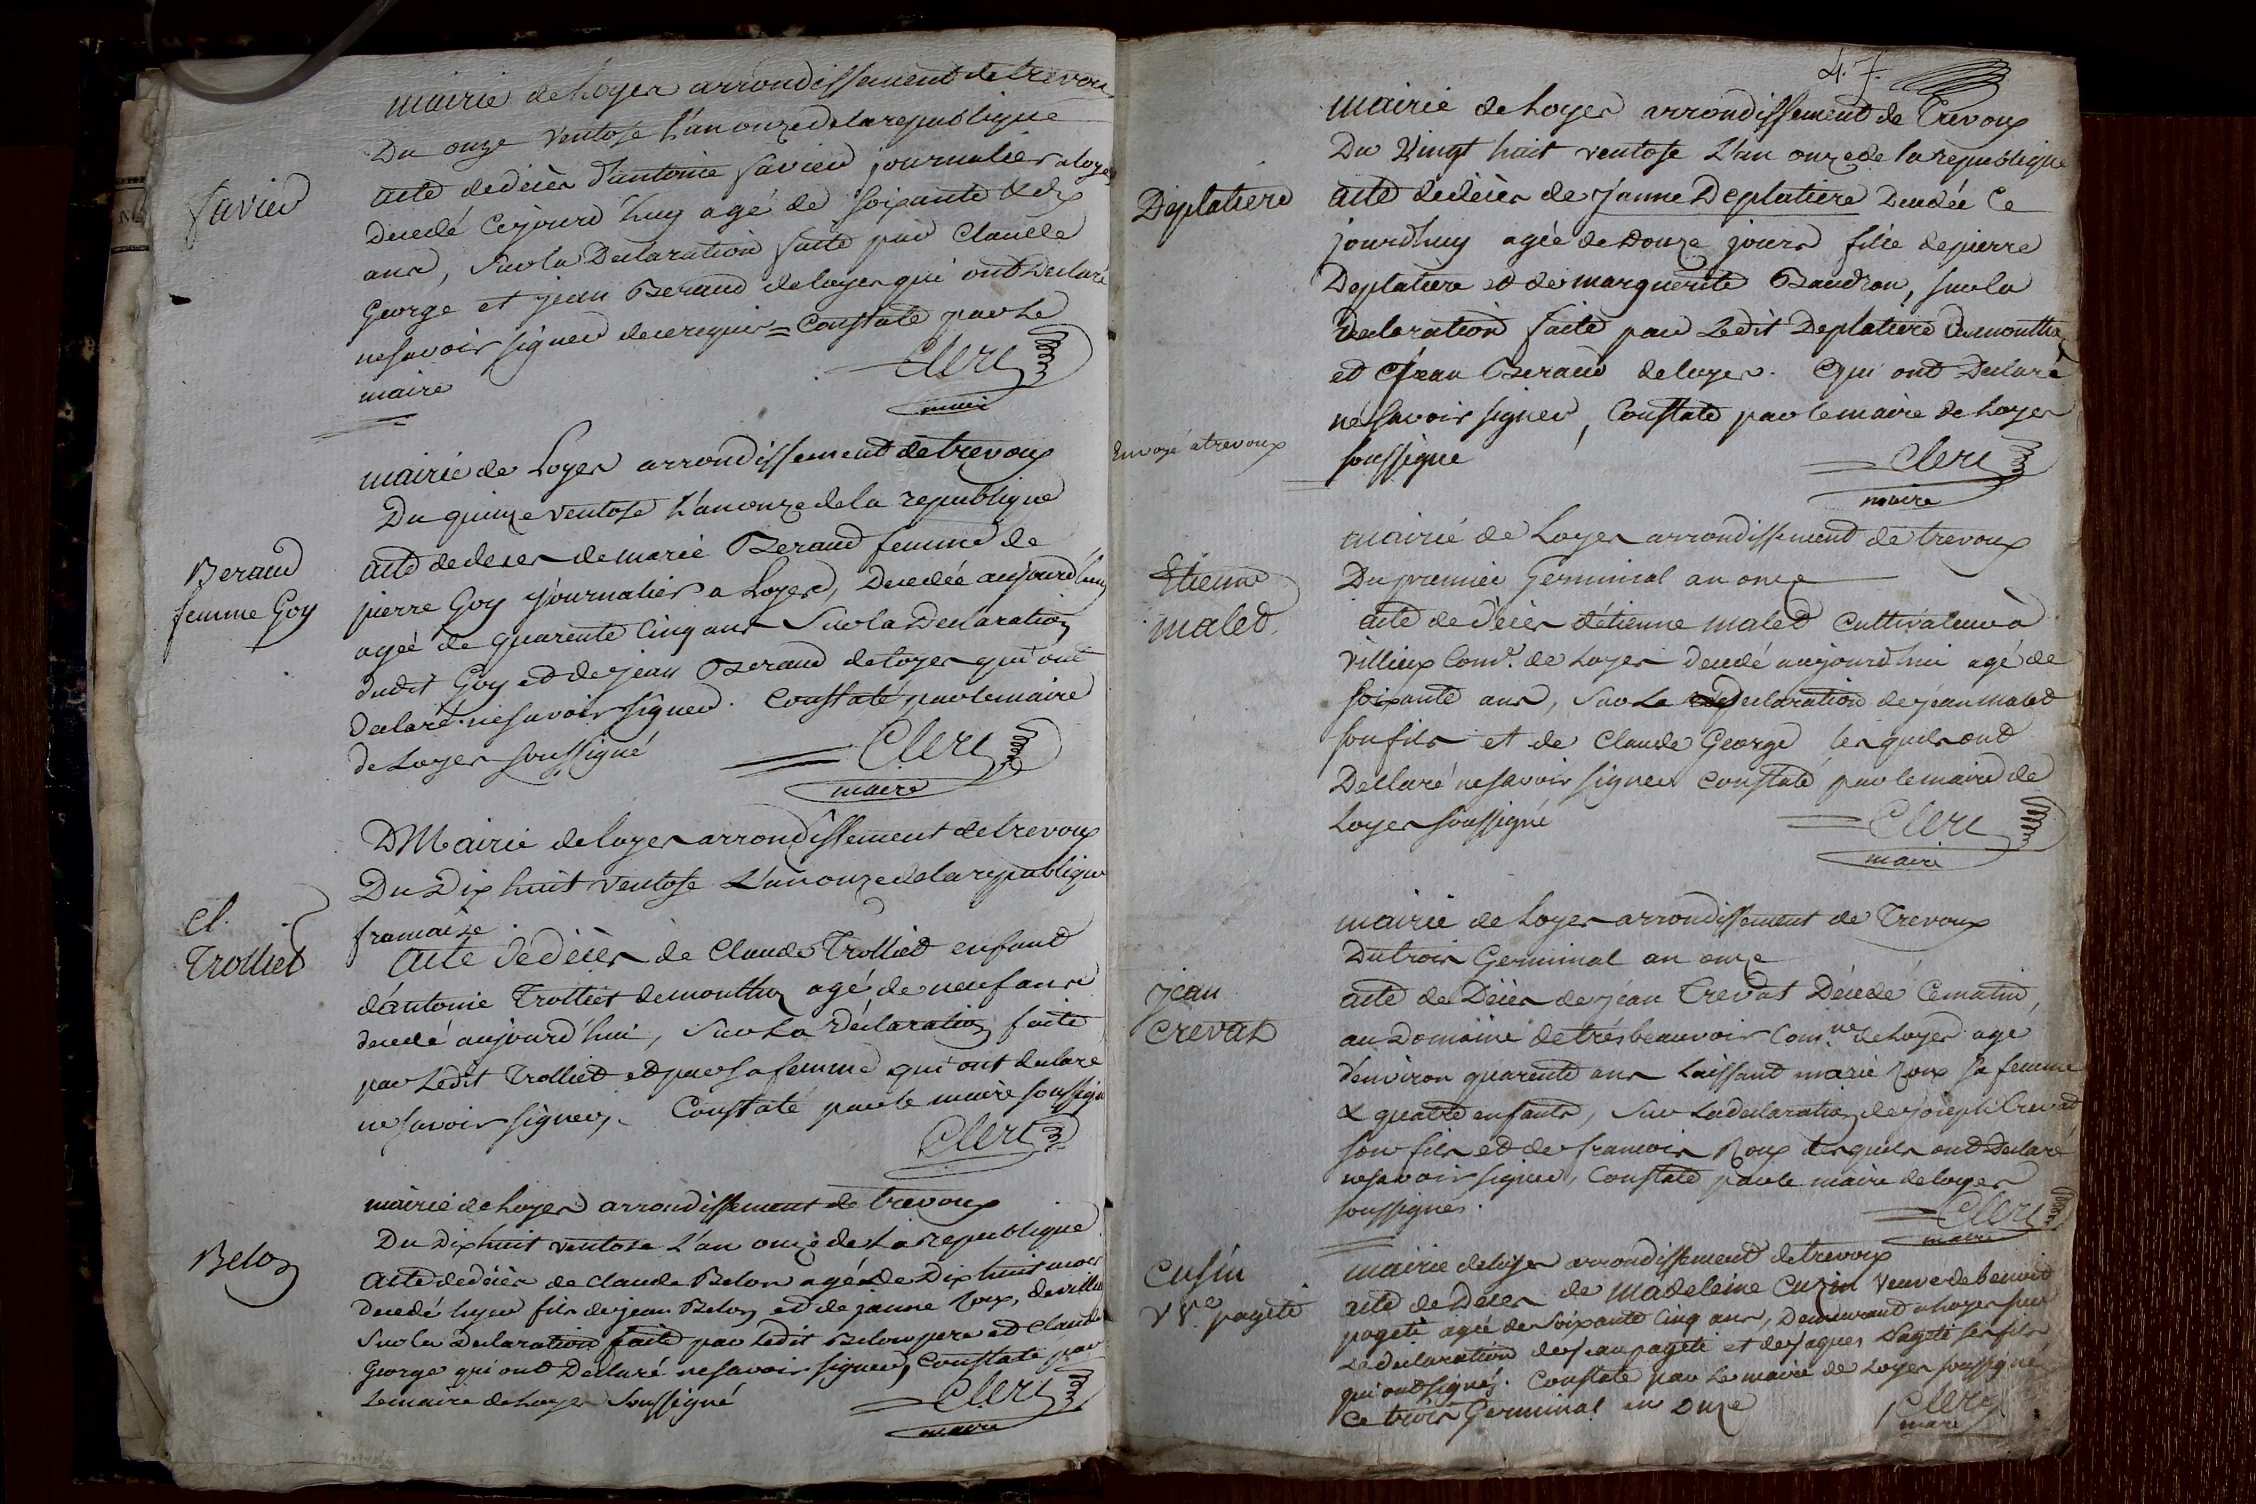 mairie de Loyes arrondissement de trevoux
Du onze ventose L'an onze de la republique
Savier
acte de deces d'antoine Savier journalier a loyes
decedé cejourd'huy agé de soixante & dix
ans, Sur la Declaration faite par Claude
George et jean Beraud de loyes qui ont declaré
ne savoir signer de ce requis = Constaté par Le
maire
Clerc
maire
mairie de Loyes arrondissement de trevoux
Du quinze ventose L'an onze de la republique
Beraud
femme Goy
acte de deces de marie Beraud femme de
pierre Goy journalier a Loyes, Decedée aujourd'huy
agée de quarente cinq ans Sur la Declaration
dudit Goy et de jean Beraud de loyes qui ont
declaré ne savoir signer. Constaté par le maire
de Loyes soussigné
Clerc
maire
Mairie de loyes arrondissement de trevoux
Du Dix huit ventose L'an onze de la republique
francaise
Cl.
Trolliet
acte de déces de Claude Trolliet enfant
d'antoine Trolliet de monthoz agé de neuf ans
decedé aujourd'hui, Sur La déclaration faite
par Ledit Trolliet et par sa femme qui ont declaré
ne savoir signer. Constaté par le maire soussigné
Clerc
mairie de Loyes arrondissement de trevoux
Du Dix huit ventose L'an onze de La republique
Belon
acte de déces de claude Belon agé de Dix huit mois
decedé hyer fils de jean Belon et de janne Roux, de
Sur la declaration faite par Ledit Belon pere et Claude
George qui ont Declaré ne savoir signer, Constaté par
Le maire de Loyes Soussigné
Clerc
maire
47.
mairie de Loyes arrondissement de Trevoux
Du Vingt huit ventose L'an onze de la republique
Deplatiere
acte de déces de Janne Deplatiere Decedée Ce
jourd'huy agée de Douze jours fille de pierre
Deplatiere et de marguerite Baudron, sur la
declaration faite par Ledit Deplatiere de monthoz
et Jean Beraud de loyes. Qui ont Declaré
ne savoir signer, Constaté par le maire de Loyes
Envoyé a trevoux
soussigné
Clerc
maire
mairie de Loyes arrondissement de trevoux
Du premier Germinal an onze
Etienne
malet
acte de déces d'étienne malet cultivateur à
villieux Com.e de Loyes decedé aujourdhui agé de
soixante ans, Sur La declaration de jean malet
son fils et de Claude George lesquels ont
Declaré ne savoir signer constaté par le maire de
Loyes soussigné
Clerc
maire
mairie de Loyes arrondissement de Trevoux
Du trois Germinal an onze
jean
crevat
acte de Déces de jean Crevat Décedé Ce matin,
au Domaine de trés beauvoir Com.ne de Loyes agé
d'environ quarente ans Laissant marie Roux sa femme
& quatre enfants, Sur La declaration de joseph Crevat
son fils et de francois Roux lesquels ont Declaré
ne savoir signer, Constaté par le maire de loyes
soussigné.
Clerc
maire
mairie de loyes arrondissement de trevoux
Cusin
Vve pageté
acte de Déces de Madeleine Cuzin veuve de benoit
pageté agée de soixante cinq ans, Demeurant a Loyes sur
La declaration de jean pageté et de jaques Pageté ses fils
qui ont signés. Constaté par Le maire de Loyes soussigné
Ce trois Germinal an onze
Clerc
maire